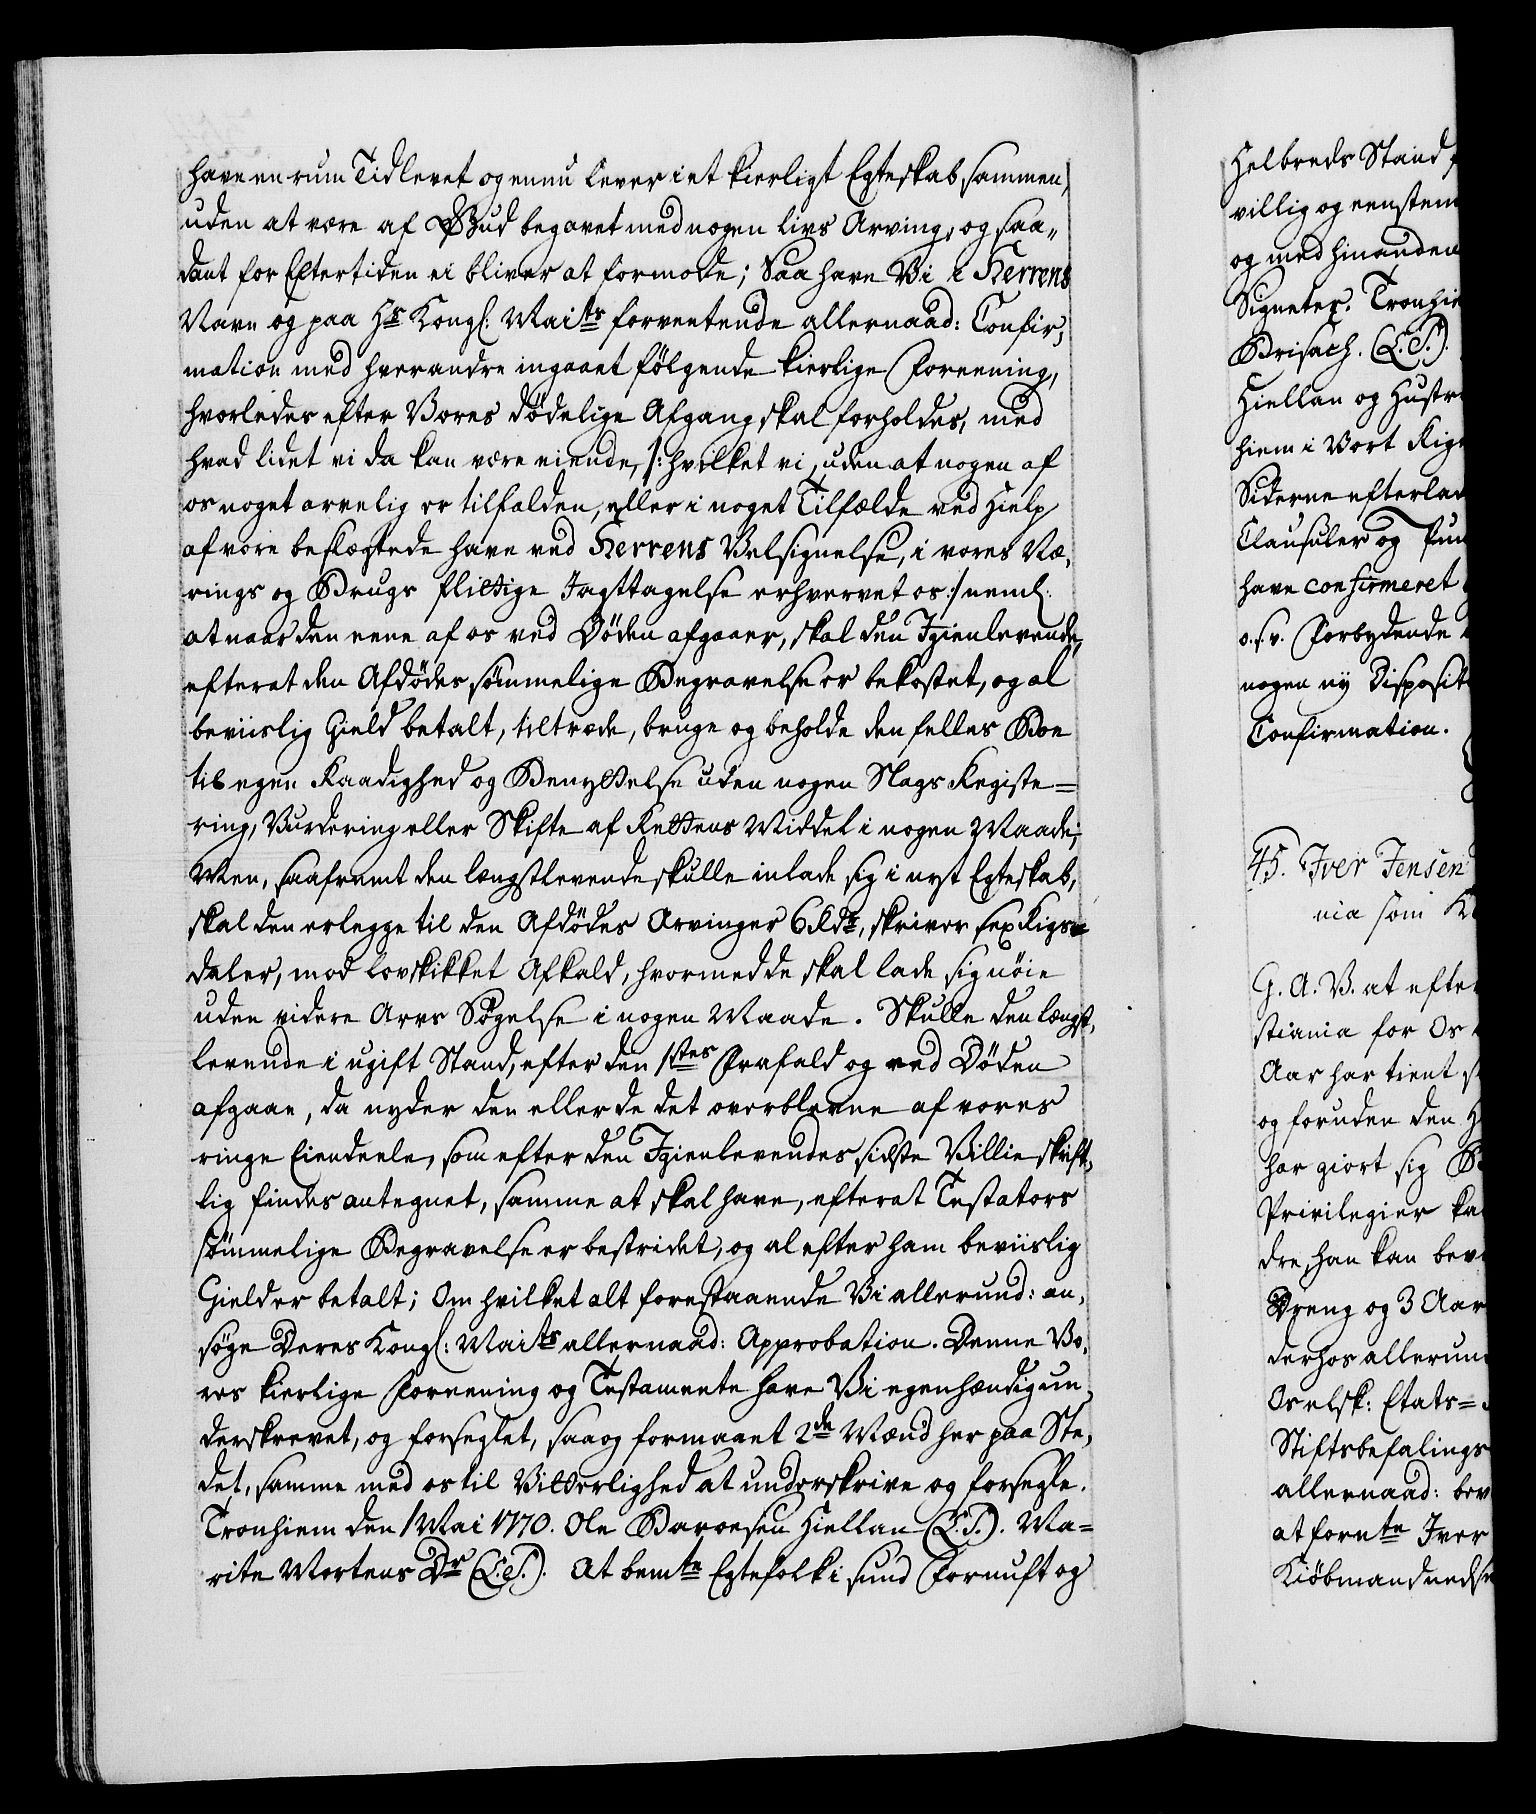 have en rum Tid levet og ennu lever i et kierligt Egteskab sammen,
uden at være af Gud begavet med nogen livs Arving, og saa„
dant for Eftertiden ei bliver at formode; Saa have Vi i Herrens
Navn og paa Hs Kongl: Maits forventende allernaad: Confir„
mation med hverandre ingaaet følgende kierlige Foreening,
hvorledes efter Vores dødelige Afgang skal forholdes, med
hvad lidet vi da kan være eiende, /: hvilket vi, uden at nogen af
os noget arvelig er tilfalden, eller i noget Tilfælde ved Hielp
af vore beslægtede have ved Herrens Velsignelse, i vores Næ„
rings og Brugs flittige Iagttagelse erhvervet os :/ neml:
at naar den eene af os ved Døden afgaaer, skal den Igienlevende,
efterat den Afdødes sømmelige Begravelse er bekostet, og al
beviislig Gield betalt, tiltræde, bruge og beholde den felles Boe
til egen Raadighed og Benyttelse uden nogen Slags Registe=
ring, Vurdering eller Skifte af Rettens Middel i nogen Maade;
Men, saafremt den længstlevende skulle inlade sig i nyt Egteskab,
skal den erlegge til den Afdødes Arvinger 6 Rdr, skriver sex Rigs=
daler, mod lovskikket Afkald, hvormed de skal lade sig nøie
uden videre Arvs Søgelse i nogen Maade. Skulle den længst„
levende i ugift Stand, efter den 1stes Frafald og ved Døden
afgaae, da nyder den eller de det overblevne af vores
ringe Eiendeele, som efter den Igienlevendes sidste Villie skrift„
lig findes antegnet, samme at skal have, efterat Testators
sømmelige Begravelse er bestridet, og al efter ham beviislig
Gield er betalt; Om hvilket alt forestaaende Vi allerund: an„
søge Deres Kongl: Maits allernaad: Approbation. Denne Vo„
res kierlige Foreening og Testamente have Vi egenhændig un„
derskrevet, og forseglet, saa og formaaet 2de Mænd her paa Ste„
det, samme med os til Vitterlighed at underskrive og forsegle.
Tronhiem den 1 Mai 1770. Ole Baroesen Hiellan (L. S.). Ma=
rite Mortens Dr (L. S.). At bemte Egtefolk i sund Fornuft og
Helbreds Stand
villig og eenstem
og med hinanden
Signeter. Tronhie
Brisach. (L. S.).
Hiellan og Hustr
hiem i Vort Rige
Siderne efterlad
Clausuler og Pun
have confirmeret
o. s. v. Forbydende
nogen ny Disposit
Confirmation.
45. Iver Jensen
nia som K
G. A. V. at efter
stiania for Os
Aar har tient s
og foruden den H
har giort sig B
Privilegier ka
dre, han kan bev
Dreng og 3 Aar
derhos allerun
Os elsk: Etats=
Stiftsbefalings
allernaad: bev
at fornte Iver
Kiøbmand neds